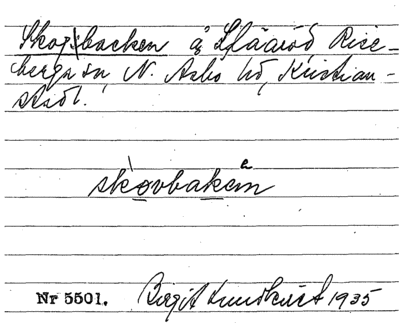 Skogsbacken å Lfäaröd, Rise-
berga sn, N. Asbo hd, Kristian-
stads l.
skovbaken
Nr 5501. Birgit Lundkvist 1935